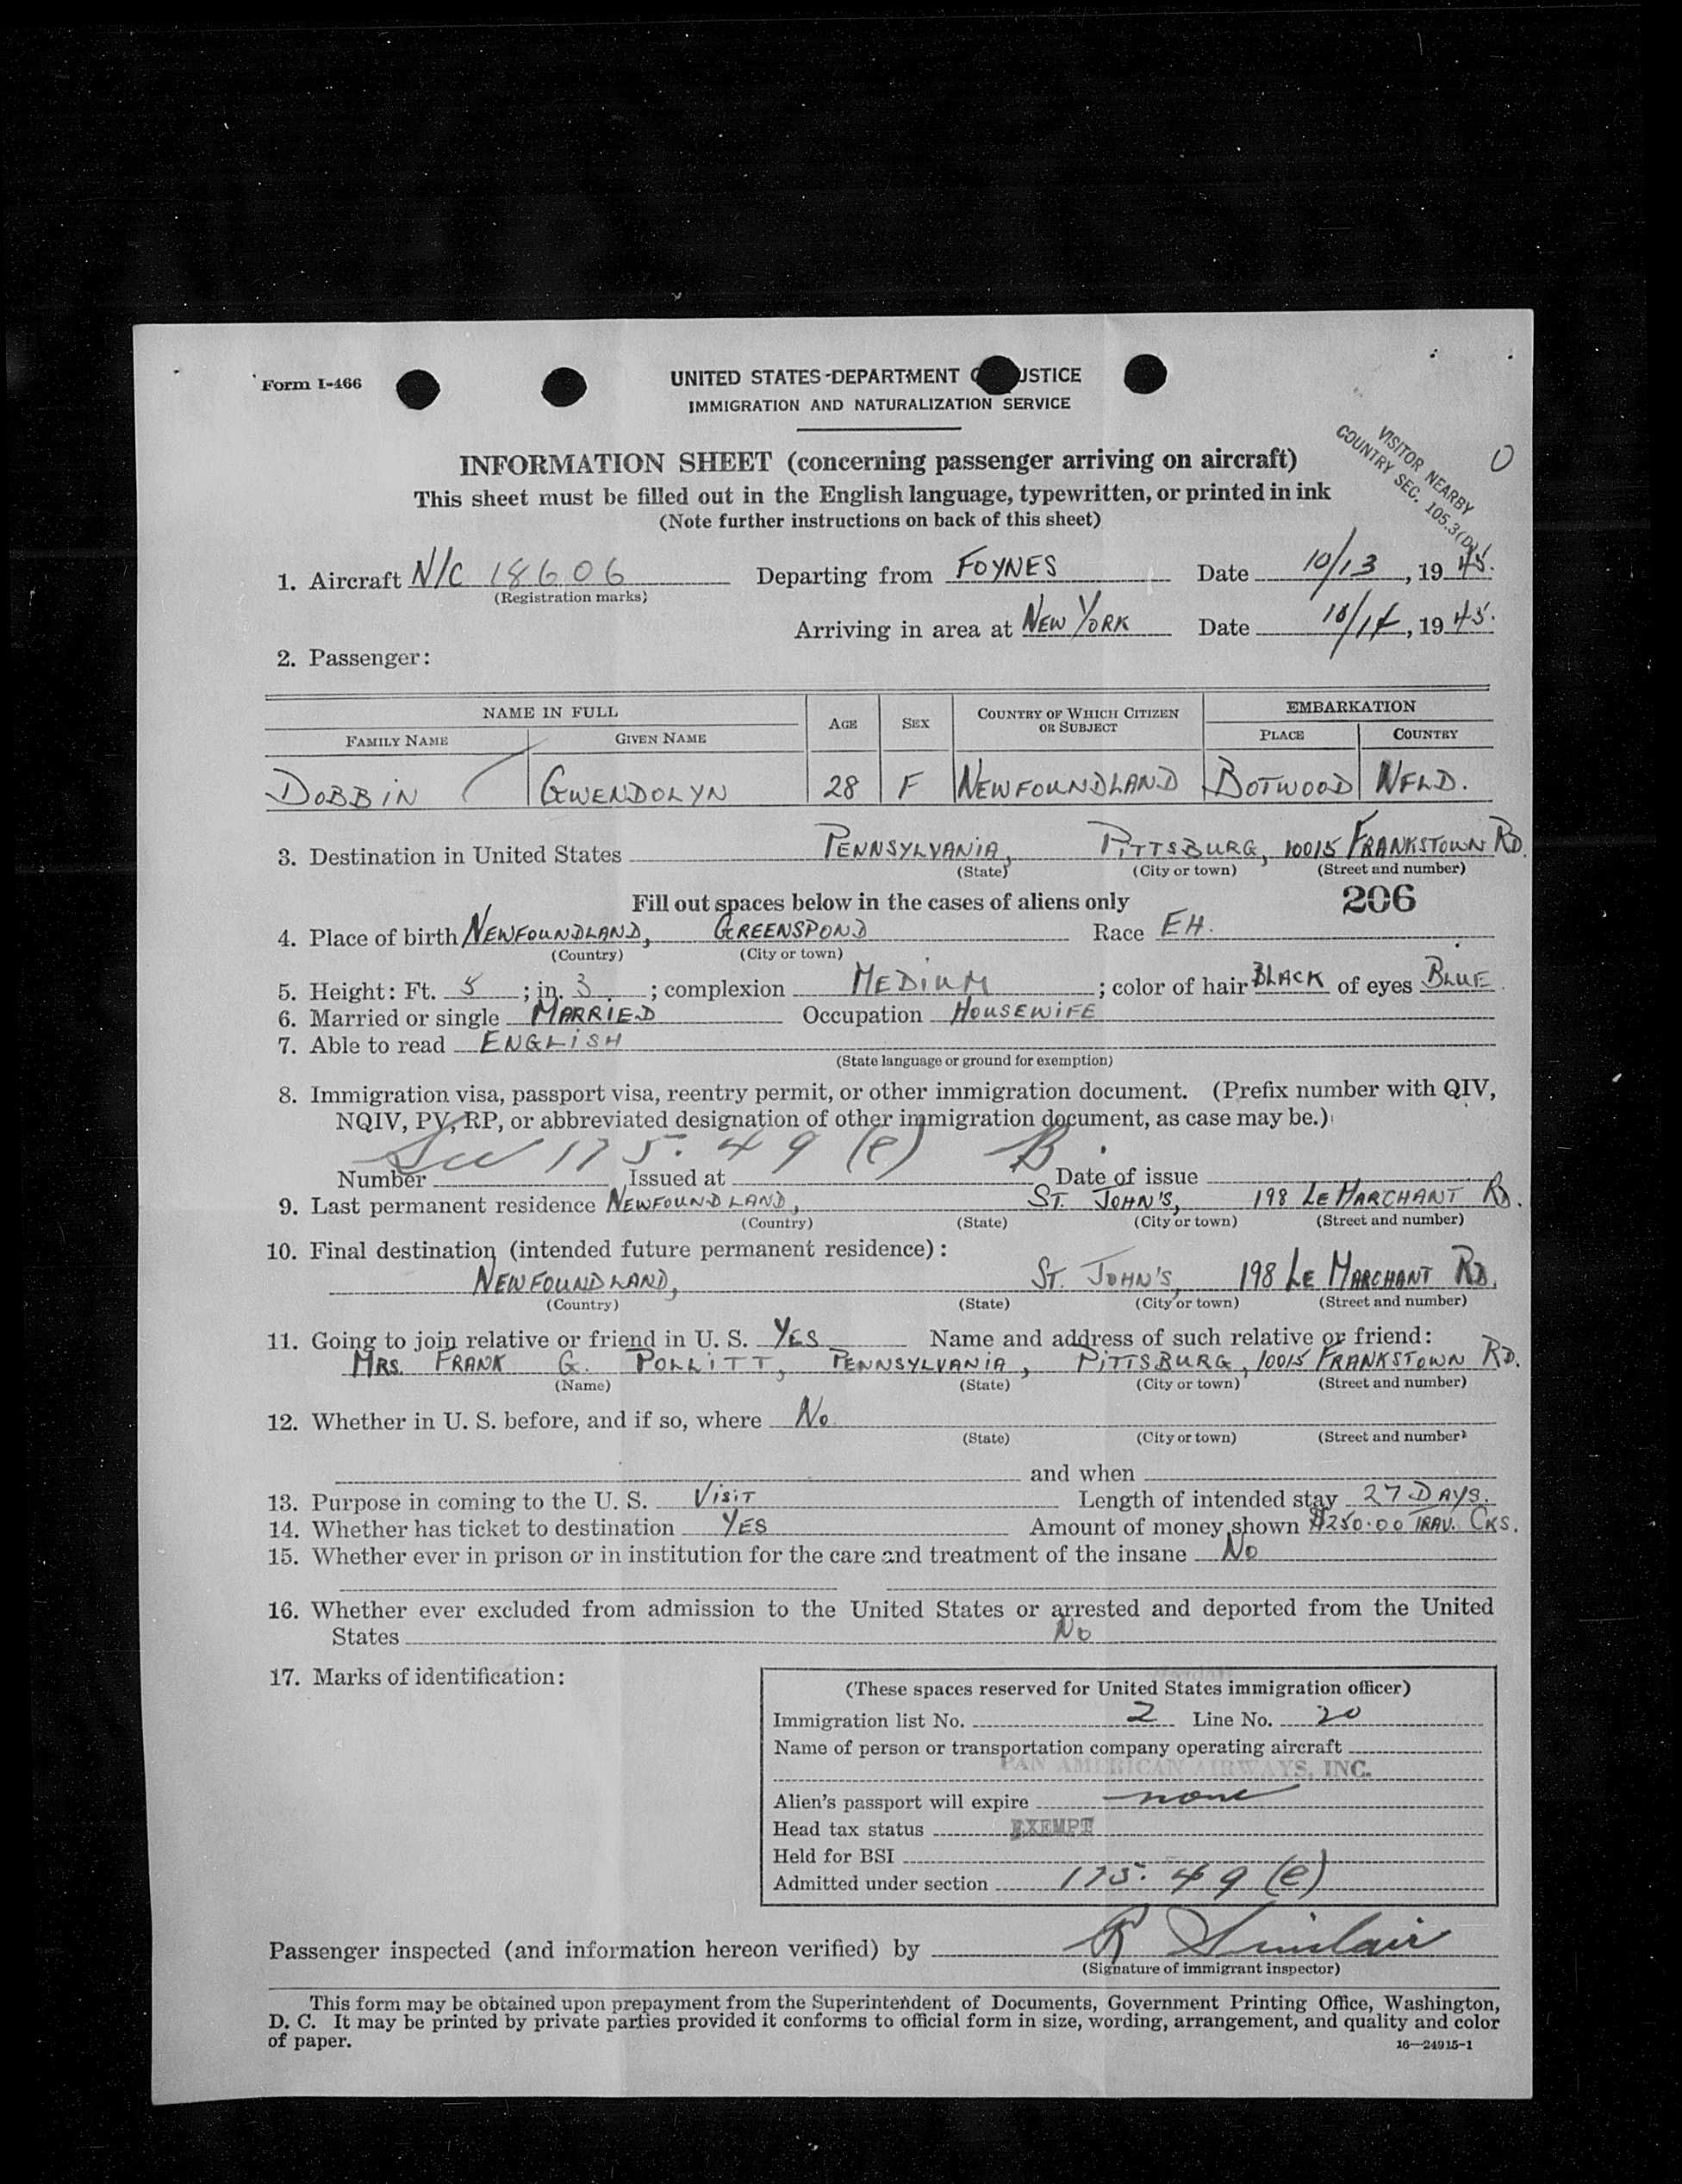 Form I-466
UNITED STATES DEPARTMENT OF JUSTICE
IMMIGRATION AND NATURALIZATION SERVICE
INFORMATION SHEET (concerning passenger arriving on aircraft)
This sheet must be filled out in the English language, typewritten, or printed in ink
(Note further instructions on back of this sheet)
VISITOR NEARBY
COUNTRY SEC. 105.3(D)
O
1. Aircraft N/C 18606 Departing from FOYNES Date 10/13, 1945.
(Registration marks)
Arriving in area at NEW YORK Date 10/14, 1945.
2. Passenger:
NAME IN FULL AGE SEX COUNTRY OF WHICH CITIZEN OR SUBJECT EMBARKATION
FAMILY NAME GIVEN NAME PLACE COUNTRY
DOBBIN GWENDOLYN 28 F NEWFOUNDLAND BOTWOOD NFLD.
3. Destination in United States PENNSYLVANIA, PITTSBURG, 10015 FRANKSTOWN RD.
(State) (City or town) (Street and number)
Fill out spaces below in the cases of aliens only 206
4. Place of birth NEWFOUNDLAND, GREENSPOND Race EH.
(Country) (City or town)
5. Height: Ft. 5 ; in. 3 ; complexion MEDIUM ; color of hair BLACK of eyes BLUE
6. Married or single MARRIED Occupation HOUSEWIFE
7. Able to read ENGLISH
(State language or ground for exemption)
8. Immigration visa, passport visa, reentry permit, or other immigration document. (Prefix number with QIV,
NQIV, PV, RP, or abbreviated designation of other immigration document, as case may be.)
175.49(e) B
Number Issued at Date of issue
9. Last permanent residence NEWFOUNDLAND, ST. JOHN'S, 198 LE MARCHANT RD.
(Country) (State) (City or town) (Street and number)
10. Final destination (intended future permanent residence):
NEWFOUNDLAND, ST. JOHN'S, 198 LE MARCHANT RD.
(Country) (State) (City or town) (Street and number)
11. Going to join relative or friend in U. S. YES Name and address of such relative or friend:
MRS. FRANK G. POLLITT, PENNSYLVANIA, PITTSBURG, 10015 FRANKSTOWN RD.
(Name) (State) (City or town) (Street and number)
12. Whether in U. S. before, and if so, where No
(State) (City or town) (Street and number)
and when
13. Purpose in coming to the U. S. VISIT Length of intended stay 27 DAYS.
14. Whether has ticket to destination YES Amount of money shown $250.00 TRAV. CKS.
15. Whether ever in prison or in institution for the care and treatment of the insane No
16. Whether ever excluded from admission to the United States or arrested and deported from the United
States No
17. Marks of identification:
(These spaces reserved for United States immigration officer)
Immigration list No. 2 Line No. 20
Name of person or transportation company operating aircraft
PAN AMERICAN AIRWAYS, INC.
Alien's passport will expire none
Head tax status EXEMPT
Held for BSI
Admitted under section 175.49(e)
Passenger inspected (and information hereon verified) by R Sinclair
(Signature of immigrant inspector)
This form may be obtained upon prepayment from the Superintendent of Documents, Government Printing Office, Washington,
D. C. It may be printed by private parties provided it conforms to official form in size, wording, arrangement, and quality and color
of paper.
16—24915-1